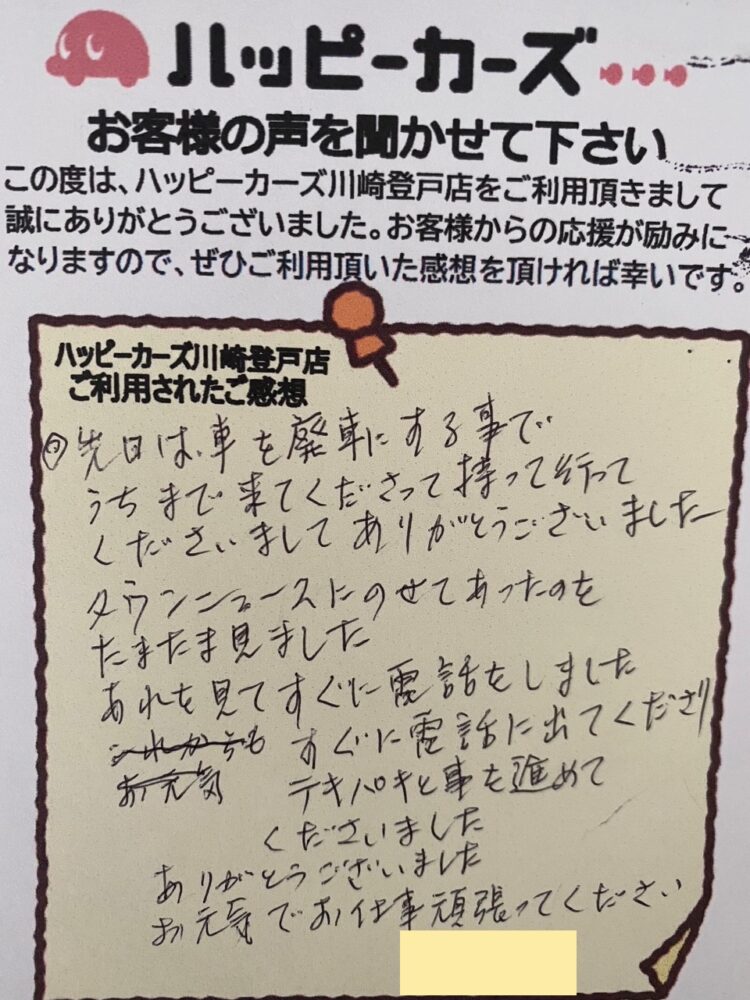 ハッピーカーズ
お客様の声を聞かせて下さい
この度は、ハッピーカーズ川崎登戸店をご利用頂きまして
誠にありがとうございました。お客様からの応援が励みに
なりますので、ぜひご利用頂いた感想を頂ければ幸いです。
ハッピーカーズ川崎登戸店
ご利用されたご感想
先日は、車を廃車にする事で
うちまで来てくださって持って行って
くださいましてありがとうございました
タウンニュースにのせてあったのを
たまたま見ました
あれを見てすぐに電話をしました
これからも すぐに電話に出てくださり
お元気 テキパキと事を進めて
くださいました
ありがとうございました
お元気でお仕事頑張ってください